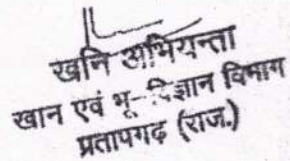 खनि अभियन्ता
खान एवं भू-विज्ञान विभाग
प्रतापगढ़ (राज.)